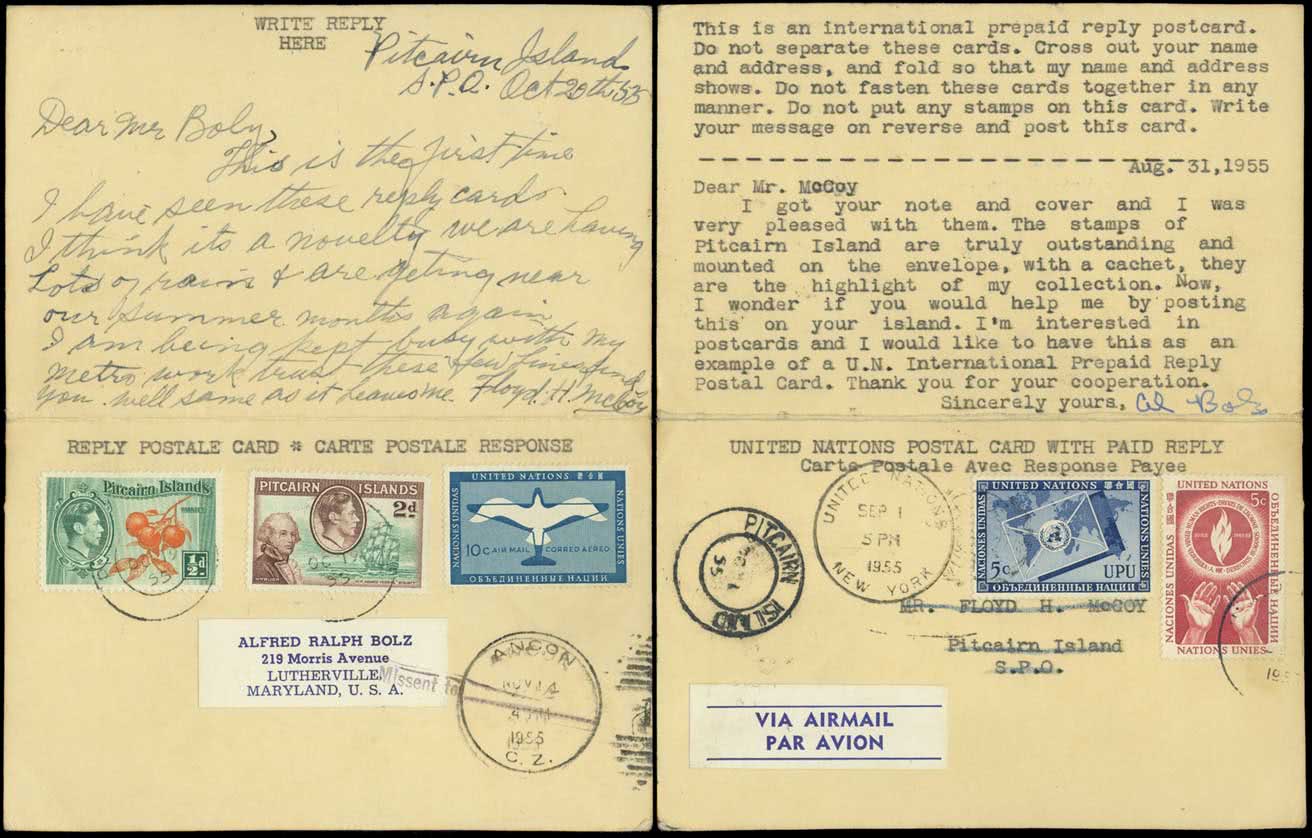 WRITE REPLY
HERE
Pitcairn Island
S.P.O. Oct 20th 55
Dear Mr Bolz
This is the first time
I have seen these reply cards
I think its a novelty we are having
Lots of rains & are geting near
our summer months again
I am being kept busy with my
metro work trust these few lines find
you well same as it leaves me Floyd. H. McCoy
REPLY POSTALE CARD * CARTE POSTALE RESPONSE
Pitcairn Islands
½d
PITCAIRN ISLANDS
2d
UNITED NATIONS
NACIONES UNIDAS
10c AIR MAIL CORREO AEREO
NATIONS UNIES
ОБЪЕДИНЕННЫЕ НАЦИИ
ALFRED RALPH BOLZ
219 Morris Avenue
LUTHERVILLE
MARYLAND, U. S. A.
Missent to
ANCON
NOV 14
1955
C. Z.
This is an international prepaid reply postcard.
Do not separate these cards. Cross out your name
and address, and fold so that my name and address
shows. Do not fasten these cards together in any
manner. Do not put any stamps on this card. Write
your message on reverse and post this card.
Aug. 31,1955
Dear Mr. McCoy
I got your note and cover and I was
very pleased with them. The stamps of
Pitcairn Island are truly outstanding and
mounted on the envelope, with a cachet, they
are the highlight of my collection. Now,
I wonder if you would help me by posting
this on your island. I'm interested in
postcards and I would like to have this as an
example of a U.N. International Prepaid Reply
Postal Card. Thank you for your cooperation.
Sincerely yours, Al Bolz
UNITED NATIONS POSTAL CARD WITH PAID REPLY
Carte Postale Avec Response Payee
PITCAIRN ISLAND
55
UNITED NATIONS
SEP 1
5 PM
1955
NEW YORK
UNITED NATIONS
NACIONES UNIDAS
NATIONS UNIES
5c UPU
ОБЪЕДИНЕННЫЕ НАЦИИ
UNITED NATIONS
5c
NACIONES UNIDAS
ОБЪЕДИНЕННЫЕ НАЦИИ
NATIONS UNIES
MR. FLOYD H. McCOY
Pitcairn Island
S.P.O.
VIA AIRMAIL
PAR AVION